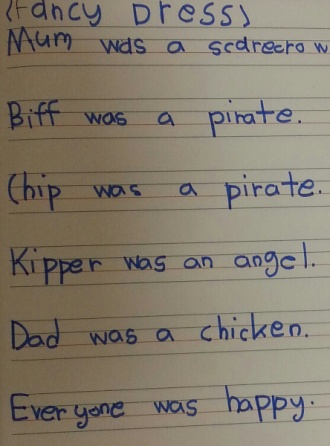 (Fancy Dress)
Mum was a scarecrow
Biff was a pirate.
Chip was a pirate.
Kipper was an angel.
Dad was a chicken.
Everyone was happy.